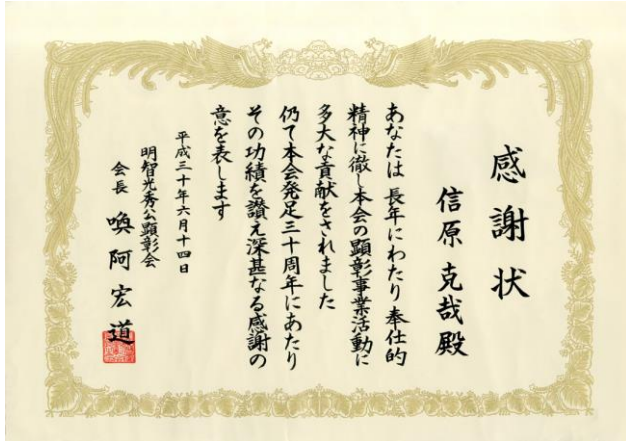 感謝状
信原克哉殿
あなたは長年にわたり奉仕的
精神に徹し本会の顕彰事業活動に
多大な貢献をされました
仍て本会発足三十周年にあたり
その功績を讃え深甚なる感謝の
意を表します
平成三十年六月十四日
明智光秀公顕彰会
会長 喚阿宏道